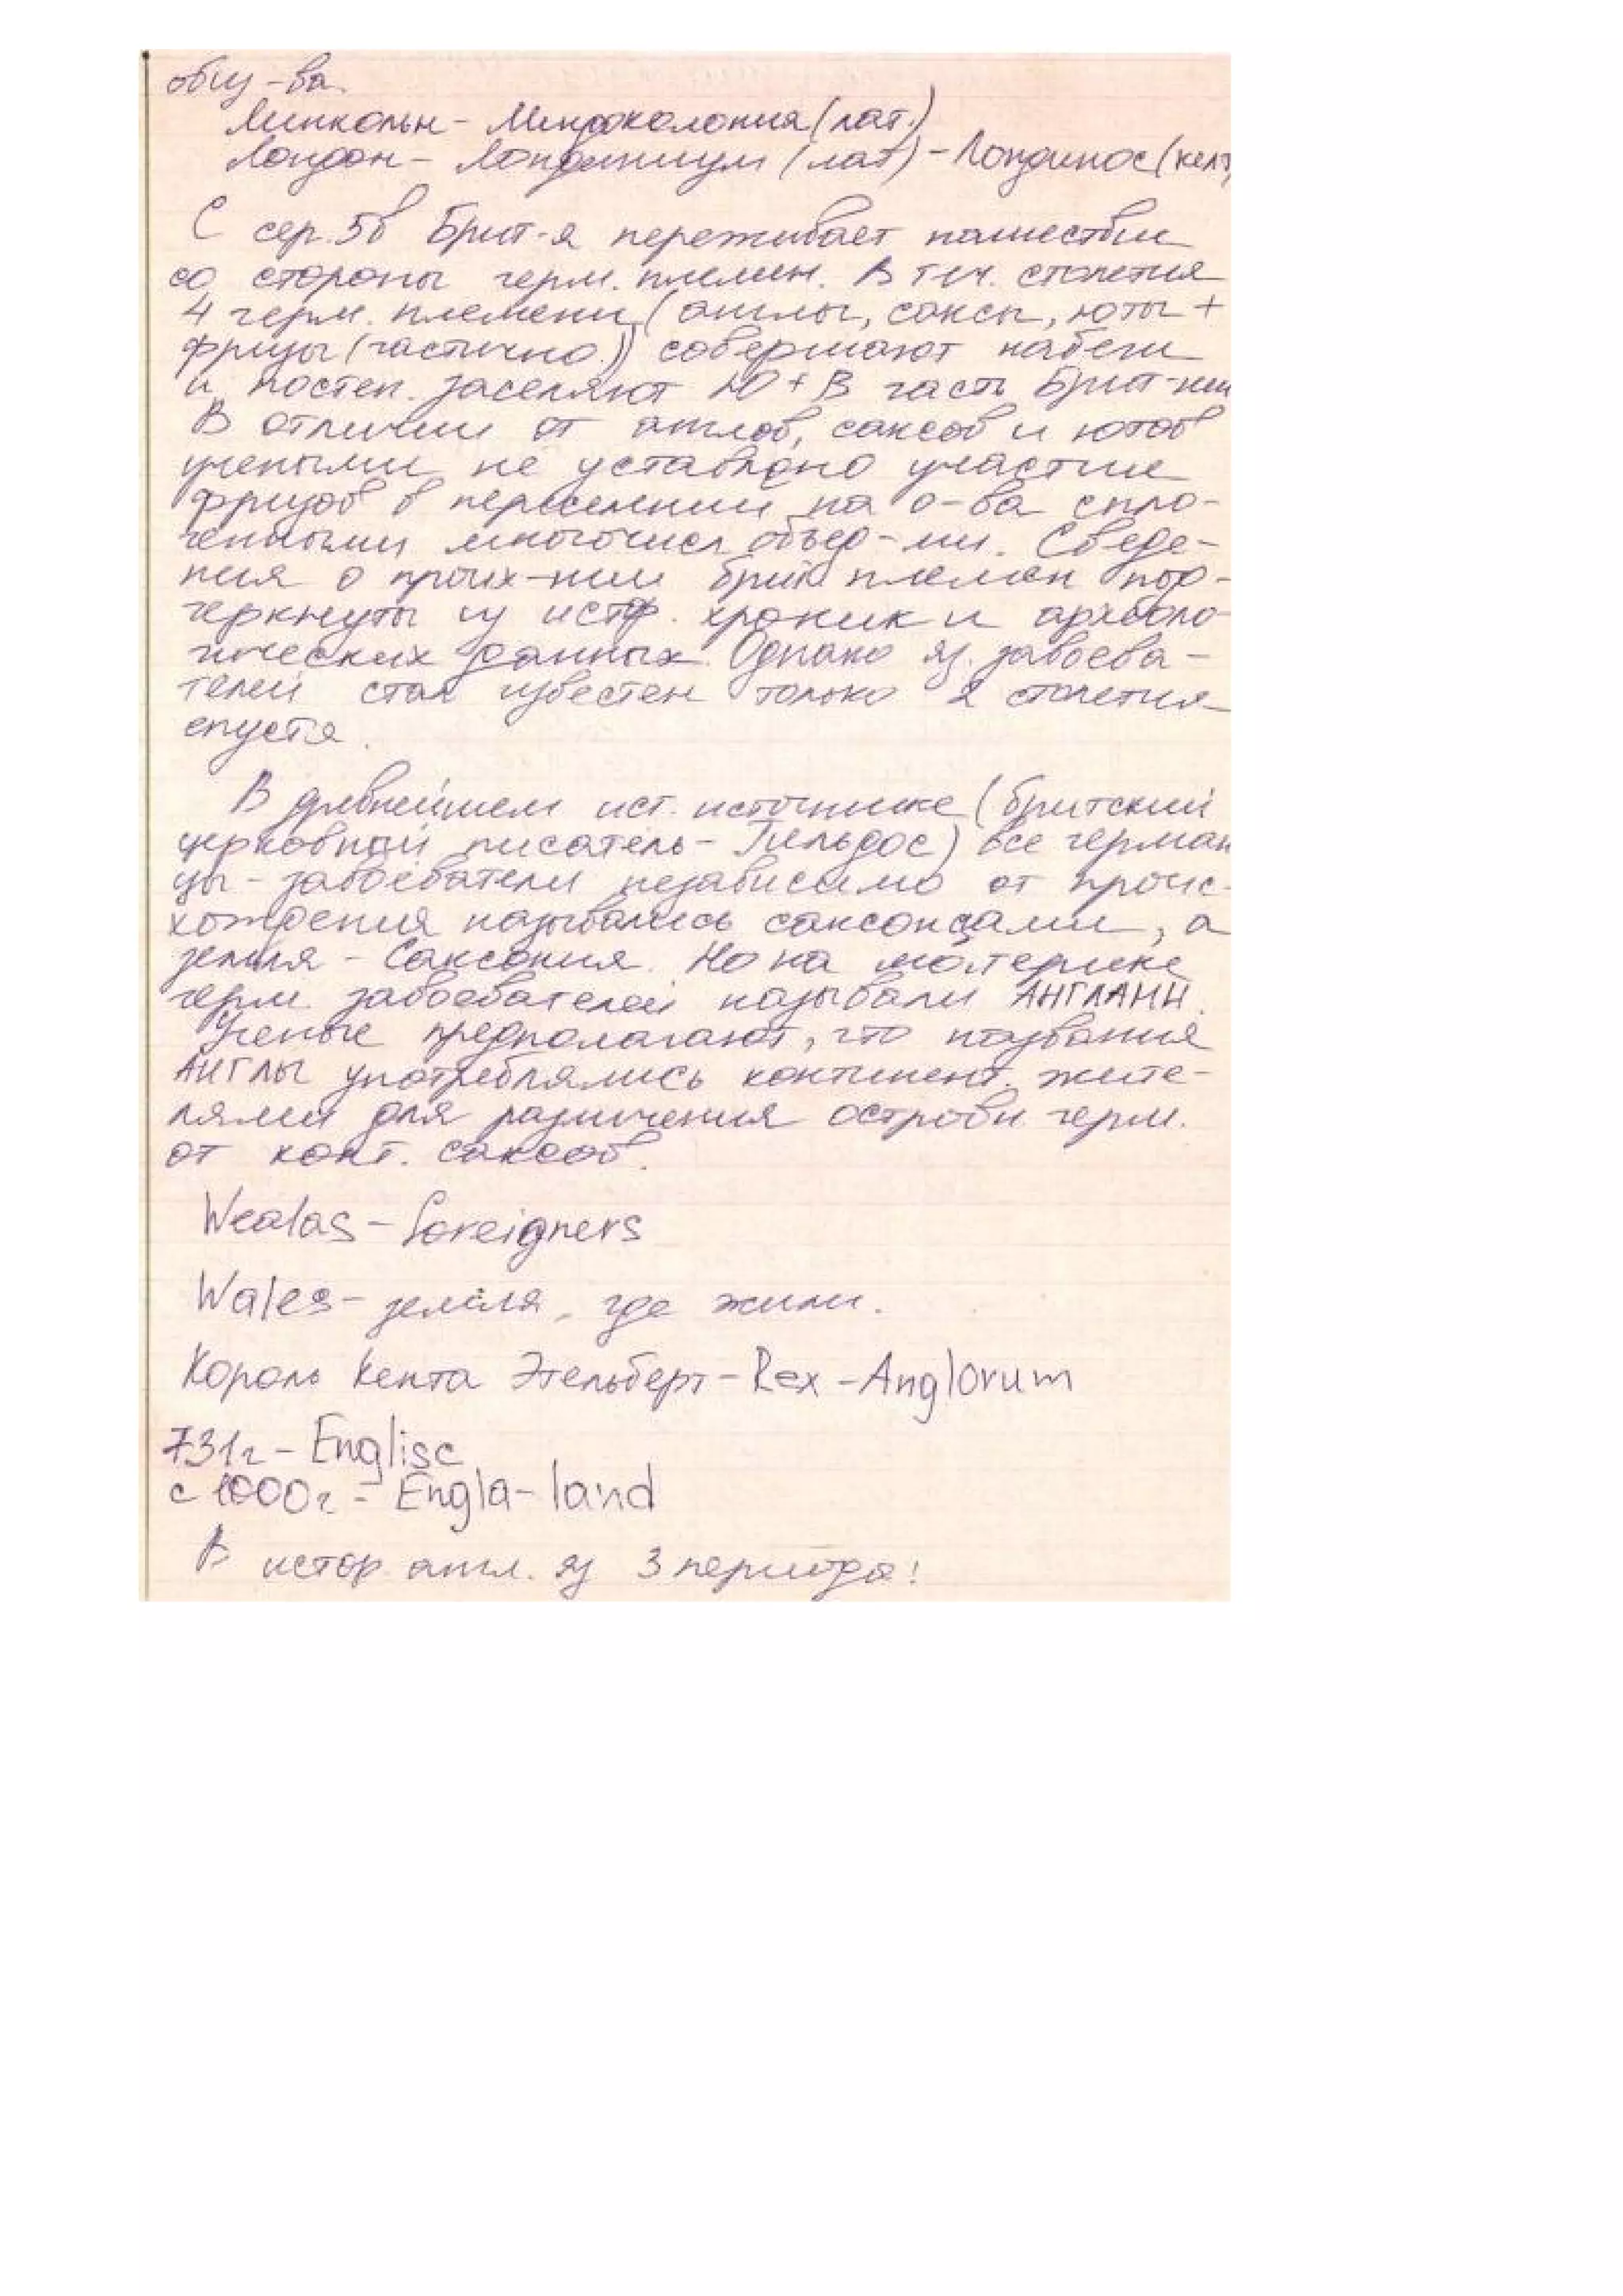 общ-ва.
Линкольн - Линдоколония (лат.)
Лондон - Лондиниум (лат) - Лондинос (келт,
С сер. 5в Брит-я переживает нашествии
со стороны герм. племен. В теч. столетия
4 герм. племени (англы, саксы, юты +
фризы (частично)) совершают набеги
и постеп. заселяют Ю + В часть Брит-нии
В отличии от англов, саксов и ютов
учеными не уставлено участие
фризов в переселении на о-ва спло-
ченными многочисл. объед-ми. Сведе-
ния о проих-нии брит. племен под-
черкнуты из истор. хроник и архболо
гических данных. Однако яз. завоева-
телей стал известен только 2 столетия
спустя.
В древнейшем ист. источнике (бритский
церковный писатель - Гильдос) все герман
цы - завоеватели независимо от проис-
хождения назывались саксонцами, а
земля - Саксония. Но на материке
герм. завоевателей называли АНГЛАМИ.
Ученые предполагают, что названия
АНГЛЫ употреблялись континент. жите-
лями для различения островн. герм.
от конт. саксов.
Wealas - foreigners
Wales - земля, где жили.
Король Кента Этельберт - Rex - Anglorum
731г - Englisc
с 1000г - Engla-land
В истор. англ. яз 3 периода!